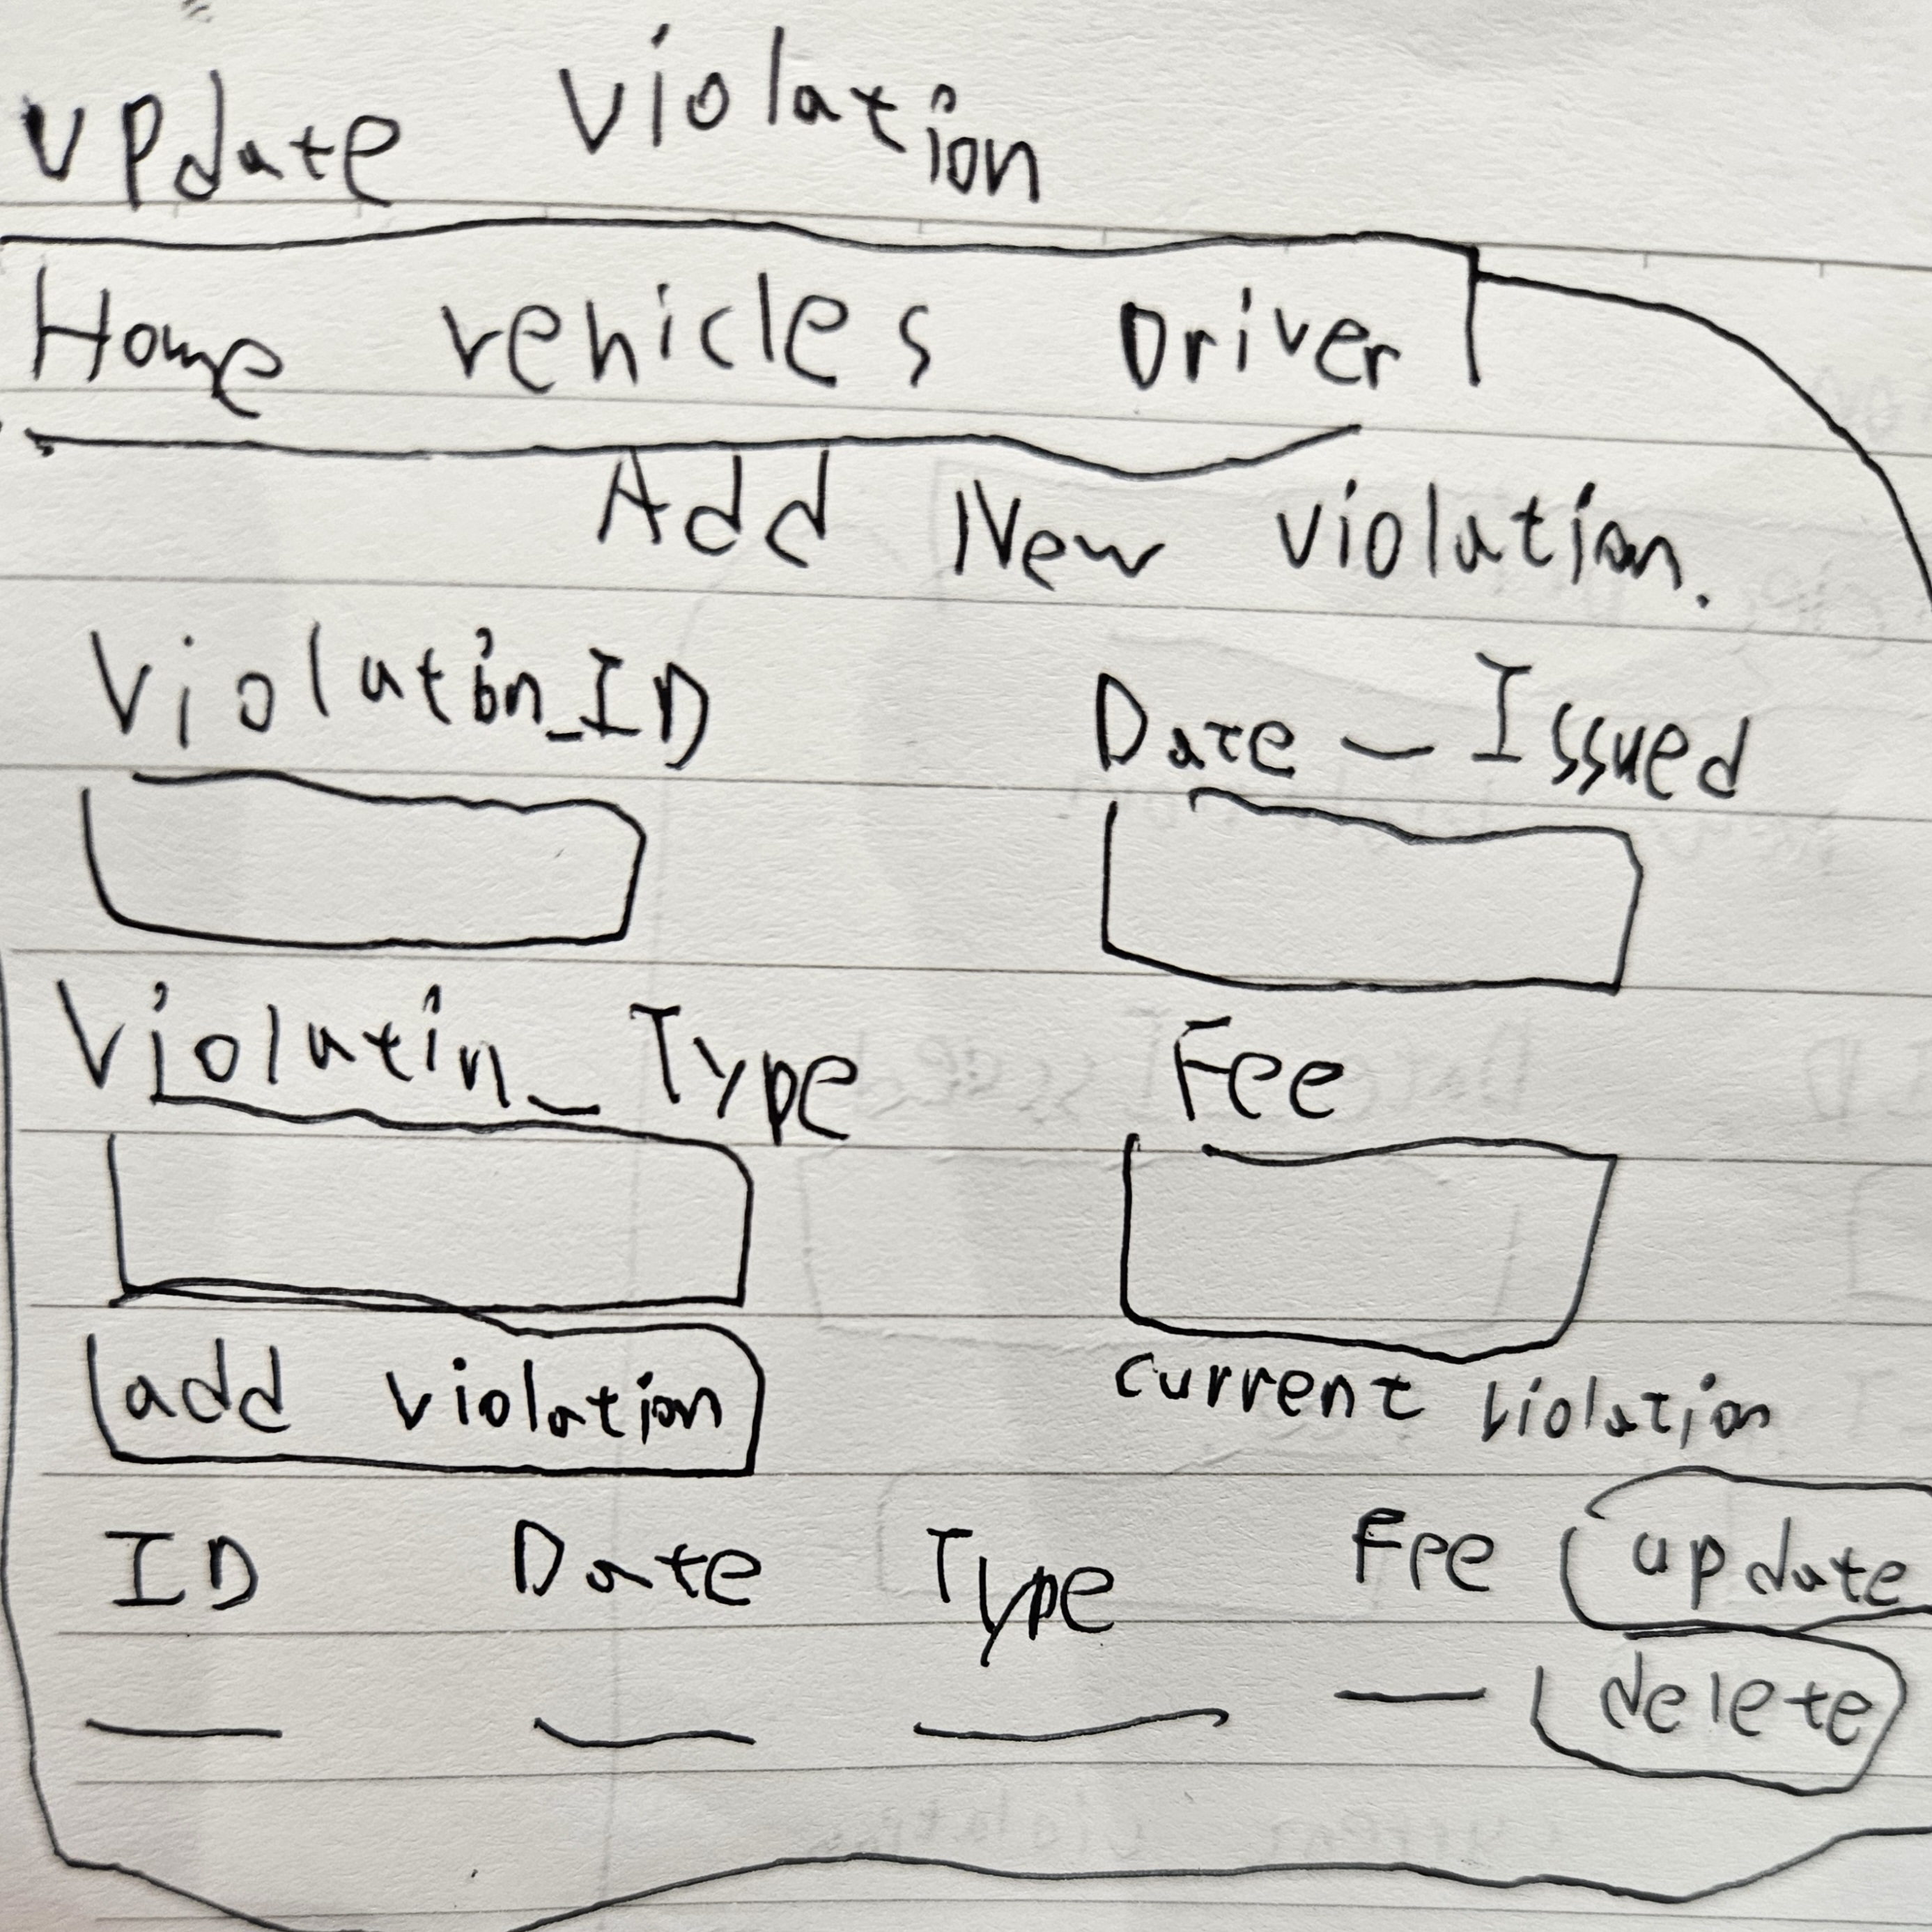 update violation
Home vehicles Driver
Add New violation.
Violation_ID Date_Issued
Violatin_Type Fee
add violation current violation
ID Date Type Fee update
delete